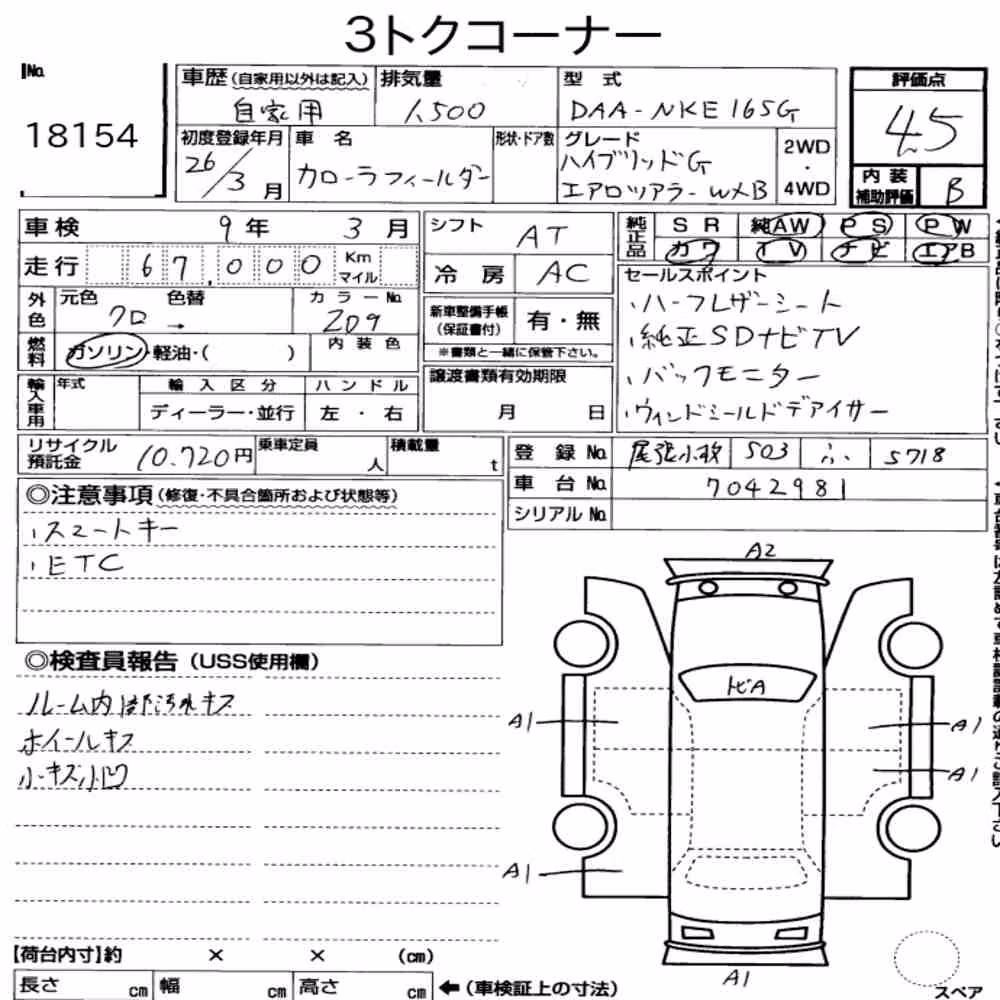 3トクコーナー
No.
18154
車歴(自家用以外は記入)
自家用
排気量
1,500
型式
DAA-NKE165G
評価点
4.5
内装補助評価
B
初度登録年月
26/3月
車名
カローラフィールダー
形状・ドア数
グレード
ハイブリッドG
エアロツアラーWXB
2WD
・
4WD
車検 9年 3月
走行 67,000 Km マイル
シフト AT
冷房 AC
純正品 SR 純AW PS PW
カワ TV ナビ エアB
外色 元色 色替 カラーNo.
クロ → 209
燃料 ガソリン・軽油・( ) 内装色
新車整備手帳(保証書付) 有・無
※書類と一緒に保管下さい。
セールスポイント
・ハーフレザーシート
・純正SDナビTV
・バックモニター
・ウィンドシールドデアイサー
輸入車用 年式 輸入区分 ハンドル
ディーラー・並行 左・右
譲渡書類有効期限
月 日
リサイクル預託金 10,720円 乗車定員 人 積載量 t
登録No. 尾張小牧 503 ふ 5718
車台No. 7042981
シリアルNo.
◎注意事項(修復・不具合箇所および状態等)
・スマートキー
・ETC
◎検査員報告(USS使用欄)
ルーム内部汚れキズ
ホイールキズ
小キズ小凹
A2
トビA
A1
A1
A1
A1
A1
【荷台内寸】約 × × (cm)
長さ cm 幅 cm 高さ cm ←(車検証上の寸法)
スペア